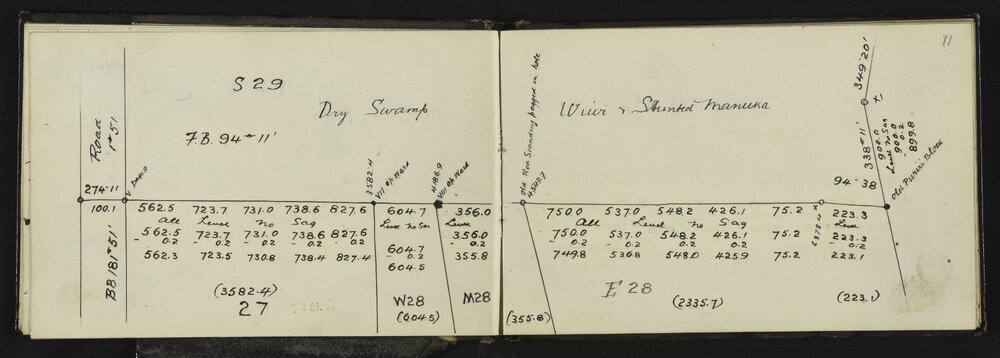 11
S 29
Dry Swamp
F.B. 94° 11'
Wiwi & Stunted Manuka
Road
1° 51'
274·11
3582.4
VII of Ward
4186.9
VII of Ward
Old Rem Standing pegged in hole
4542.7
338° 11'
349° 20'
900.0
Level no Sag
900.0
0.2
899.8
94-38
Old Puriri Block
100.1 562.5 723.7 731.0 738.6 827.6 604.7 356.0 750.0 537.0 548.2 426.1 75.2 223.3
All Level no Sag Level no Sag Level All Level no Sag Level
562.5 723.7 731.0 738.6 827.6 604.7 356.0 750.0 537.0 548.2 426.1 75.2 223.3
- 0.2 - 0.2 - 0.2 - 0.2 - 0.2 - 0.2 - 0.2 - 0.2 - 0.2 - 0.2 - 0.2 - 0.2
562.3 723.5 730.8 738.4 827.4 604.5 355.8 749.8 536.8 548.0 425.9 75.2 223.1
BB 181° 51'
(3582.4)
27
W28
(6045)
M28
(355.8)
E 28
(2335.7)
(223.1)